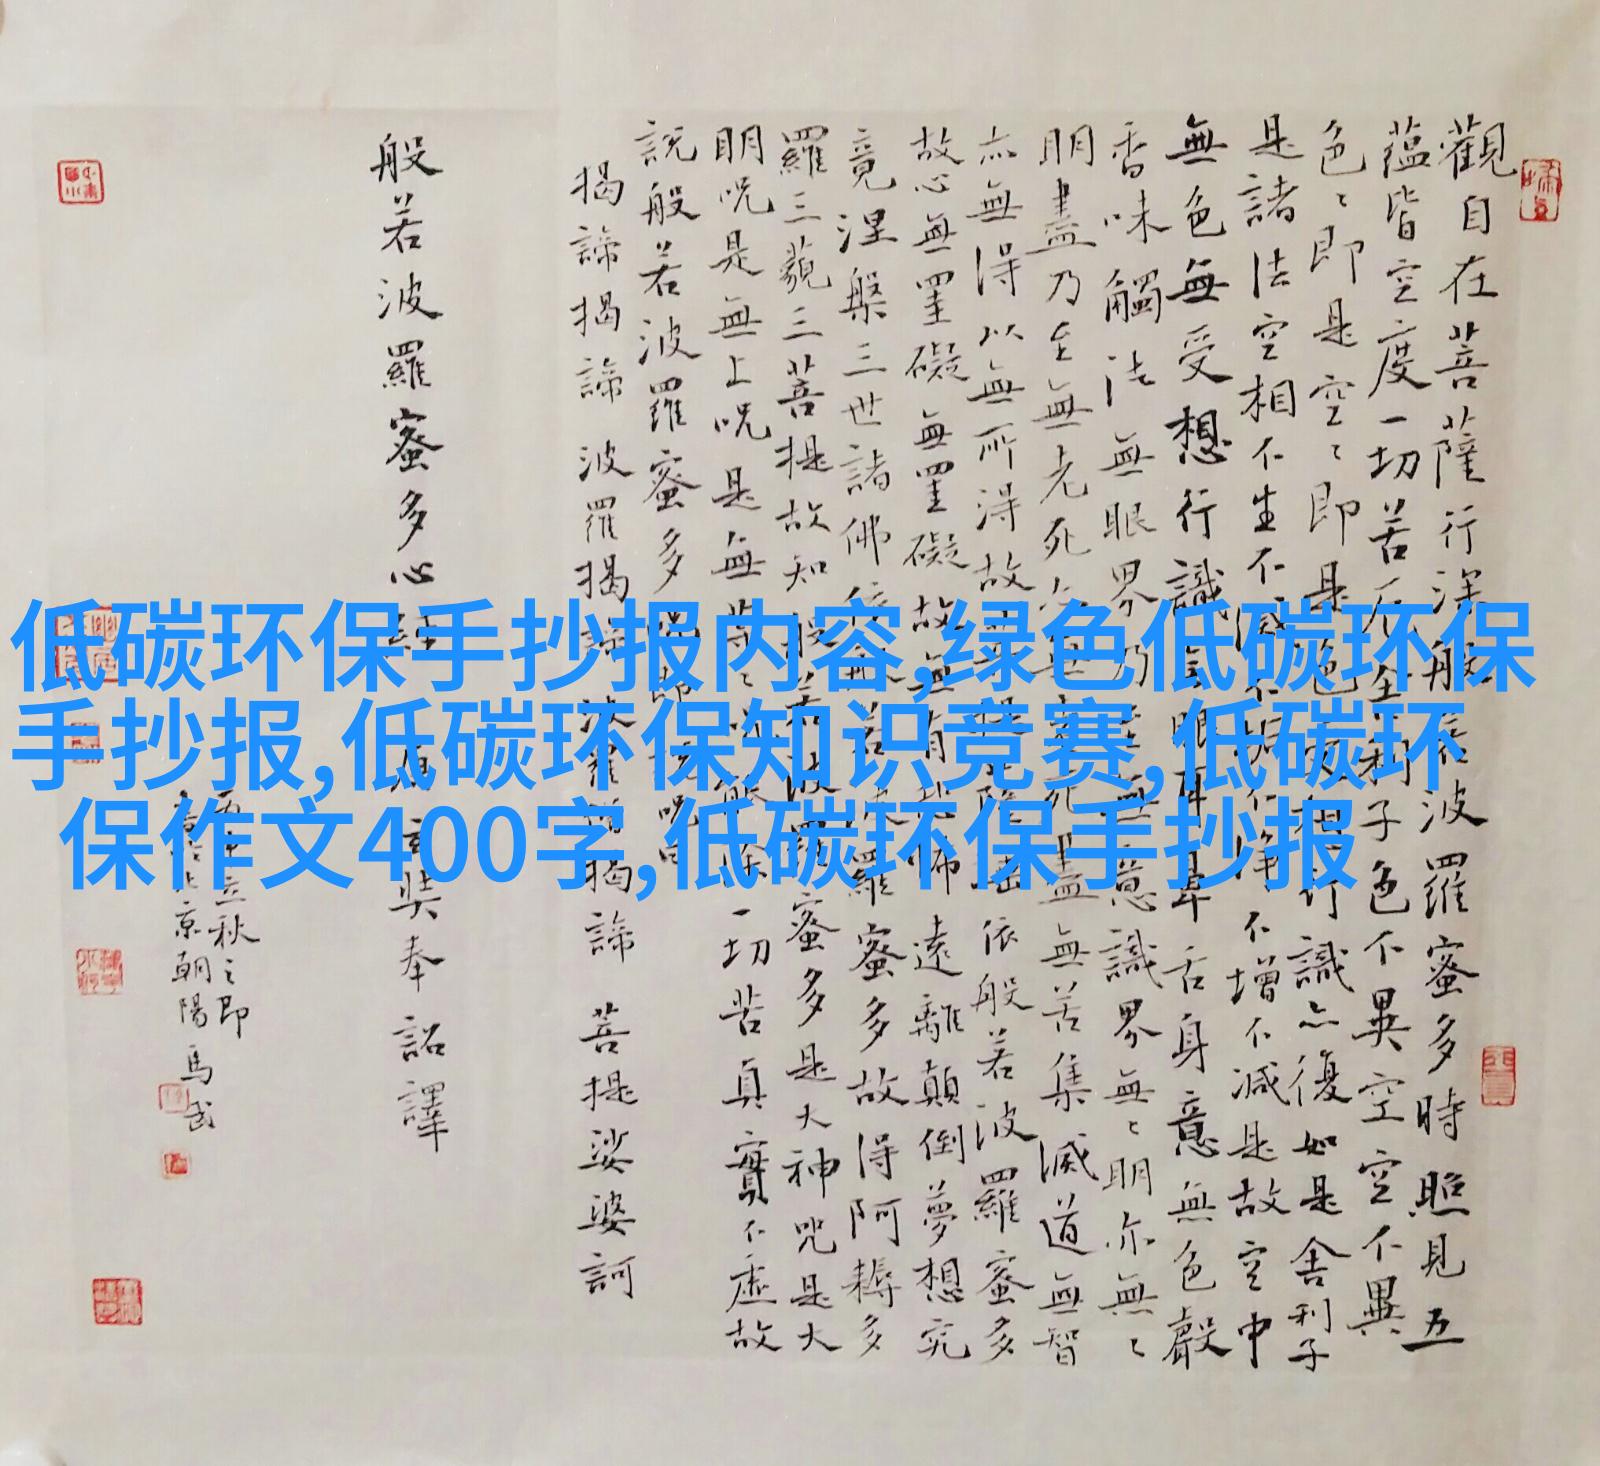 觀自在菩薩行深般若波羅蜜多時照見五
蘊皆空度一切苦厄舍利子色不異空空不異
色〻即是空〻即是色受想行識亦復如是舍利子
是諸法空相不生不滅不垢不淨不增不減是故空中
無色無受想行識無眼耳鼻舌身意無色聲
香味觸法無眼界乃至無意識界無〻明亦無〻
明盡乃至無老死亦無老死盡無苦集滅道無智
亦無得以無所得故菩提薩埵依般若波羅蜜多
故心無罣礙無罣礙故無有恐怖遠離顛倒夢想究
竟涅槃三世諸佛依般若波羅蜜多故得阿耨多
羅三藐三菩提故知般若波羅蜜多是大神咒是大
明呪是無上呪是無等〻呪能除一切苦真實不虛故
說般若波羅蜜多呪即說呪曰
揭諦揭諦 波羅揭諦 波羅僧揭諦 菩提娑婆訶
般若波羅蜜多心經 唐玄奘奉詔譯
立秋之即
京朝陽馬武
低碳环保手抄报内容,绿色低碳环保
手抄报,低碳环保知识竞赛,低碳环
保作文400字,低碳环保手抄报